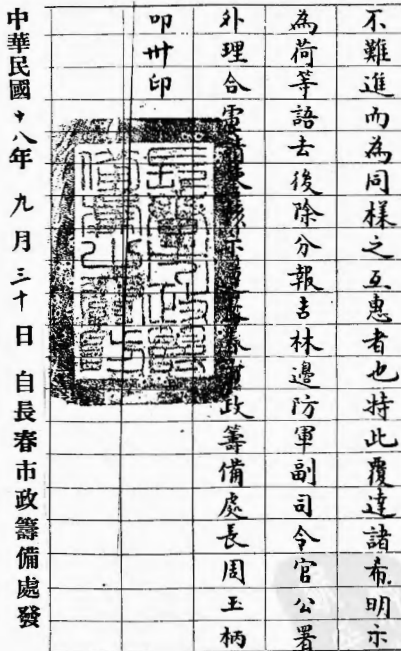 不難進而為同樣之互惠者也特此覆達諸希明示
為荷等語去後除分報吉林邊防軍副司令官公署
外理合電請核示春政籌備處長周玉柄
叩卅印
中華民國十八年九月三十日自長春市政籌備處發